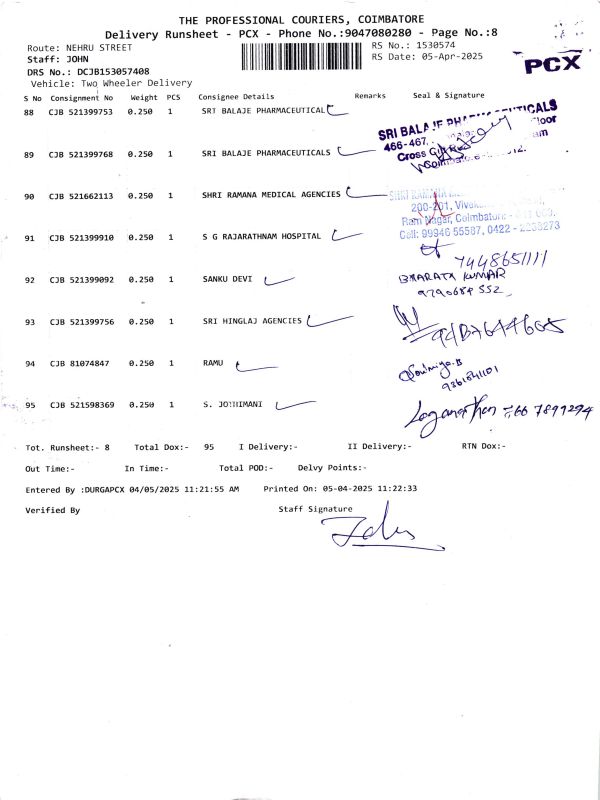 THE PROFESSIONAL COURIERS, COIMBATORE
Delivery Runsheet - PCX - Phone No.:9047080280 - Page No.:8
Route: NEHRU STREET RS No.: 1530574
Staff: JOHN RS Date: 05-Apr-2025
DRS No.: DCJB153057408
Vehicle: Two Wheeler Delivery
PCX
S No Consignment No Weight PCS Consignee Details Remarks Seal & Signature
88 CJB 521399753 0.250 1 SRI BALAJE PHARMACEUTICAL
SRI BALAJE PHARMACEUTICALS
466-467, Floor
Cross Cut
89 CJB 521399768 0.250 1 SRI BALAJE PHARMACEUTICALS
Coimbatore
90 CJB 521662113 0.250 1 SHRI RAMANA MEDICAL AGENCIES
SHRI RAMANA
200-201,
Ram Nagar, Coimbatore
Cell: 99946 55587, 0422 - 2233273
91 CJB 521399910 0.250 1 S G RAJARATHNAM HOSPITAL
7448651111
92 CJB 521399092 0.250 1 SANKU DEVI
BHARATA KUMAR
9790684 552
93 CJB 521399756 0.250 1 SRI HINGLAJ AGENCIES
94 CJB 81074847 0.250 1 RAMU
9361641101
95 CJB 521598369 0.250 1 S. JOTHIMANI
Loganathan 766 7899294
Tot. Runsheet:- 8 Total Dox:- 95 I Delivery:- II Delivery:- RTN Dox:-
Out Time:- In Time:- Total POD:- Delvy Points:-
Entered By :DURGAPCX 04/05/2025 11:21:55 AM Printed On: 05-04-2025 11:22:33
Verified By Staff Signature
John